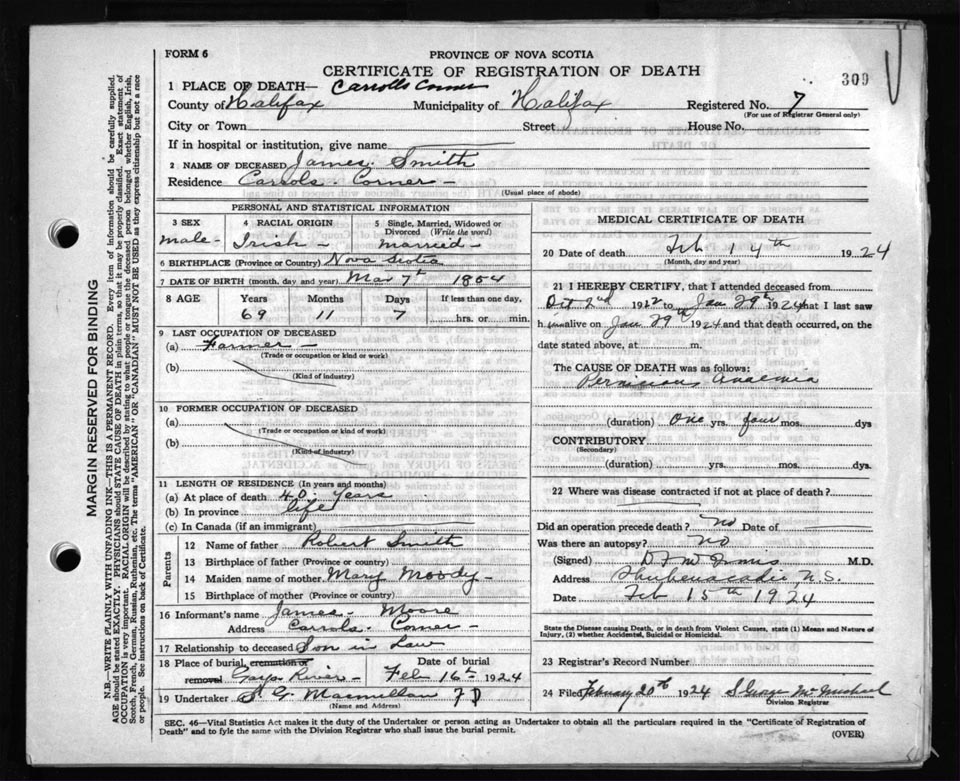 FORM 6
PROVINCE OF NOVA SCOTIA
CERTIFICATE OF REGISTRATION OF DEATH
309
1 PLACE OF DEATH— Carrolls Corner
County of Halifax Municipality of Halifax Registered No. 7
(For use of Registrar General only)
City or Town Street House No.
If in hospital or institution, give name
2 NAME OF DECEASED James Smith
Residence Carrols Corner
(Usual place of abode)
PERSONAL AND STATISTICAL INFORMATION
3 SEX 4 RACIAL ORIGIN 5 Single, Married, Widowed or Divorced (Write the word)
male Irish married
6 BIRTHPLACE (Province or Country) Nova Scotia
7 DATE OF BIRTH (month, day and year) Mar 7th 1854
8 AGE Years Months Days If less than one day,
69 11 7 hrs. or min.
9 LAST OCCUPATION OF DECEASED
(a) Farmer
(Trade or occupation or kind or work)
(b)
(Kind of industry)
10 FORMER OCCUPATION OF DECEASED
(a)
(Trade or occupation or kind of work)
(b)
(Kind of industry)
11 LENGTH OF RESIDENCE (In years and months)
(a) At place of death 40 years
(b) In province life
(c) In Canada (if an immigrant)
Parents
12 Name of father Robert Smith
13 Birthplace of father (Province or country)
14 Maiden name of mother Mary Moody
15 Birthplace of mother (Province or country)
16 Informant's name James Moore
Address Carrols Corner
17 Relationship to deceased Son in Law
18 Place of burial, cremation or removal Gays River
Date of burial Feb 16th 1924
19 Undertaker S G Macmillan
(Name and Address)
MEDICAL CERTIFICATE OF DEATH
20 Date of death Feb 14th 1924
(Month, day and year)
21 I HEREBY CERTIFY, that I attended deceased from
Oct 2nd 1922 to Jan 29th 1924 that I last saw
h im alive on Jan 29th 1924 and that death occurred, on
date stated above, at m.
The CAUSE OF DEATH was as follows:
Pernicious Anaemia
(duration) One yrs. four mos. dys
CONTRIBUTORY
(Secondary)
(duration) yrs. mos. dys
22 Where was disease contracted if not at place of death?
Did an operation precede death? No Date of
Was there an autopsy? No
(Signed) M.D.
Address Shubenacadie N.S.
Date Feb 15th 1924
State the Disease causing Death, or in death from Violent Causes, state (1) Means and Nature of
Injury, (2) whether Accidental, Suicidal or Homicidal.
23 Registrar's Record Number
24 Filed February 20th 1924
Division Registrar
SEC. 46—Vital Statistics Act makes it the duty of the Undertaker or person acting as Undertaker to obtain all the particulars required in the "Certificate of Registration of
Death" and to fyle the same with the Division Registrar who shall issue the burial permit.
(OVER)
MARGIN RESERVED FOR BINDING
N.B.—WRITE PLAINLY WITH UNFADING INK—THIS IS A PERMANENT RECORD. Every item of information should be carefully supplied.
AGE should be stated EXACTLY. PHYSICIANS should STATE CAUSE OF DEATH in plain terms, so that it may be properly classified. Exact statement of
OCCUPATION is very important. RACIAL ORIGIN will be described by stating to what people or tongue the deceased person belonged whether English, Irish,
Scotch, French, German, Russian, Ruthenian, etc. The terms "AMERICAN" OR "CANADIAN" MUST NOT BE USED as they express citizenship but not a race
or people. See instructions on back of Certificate.